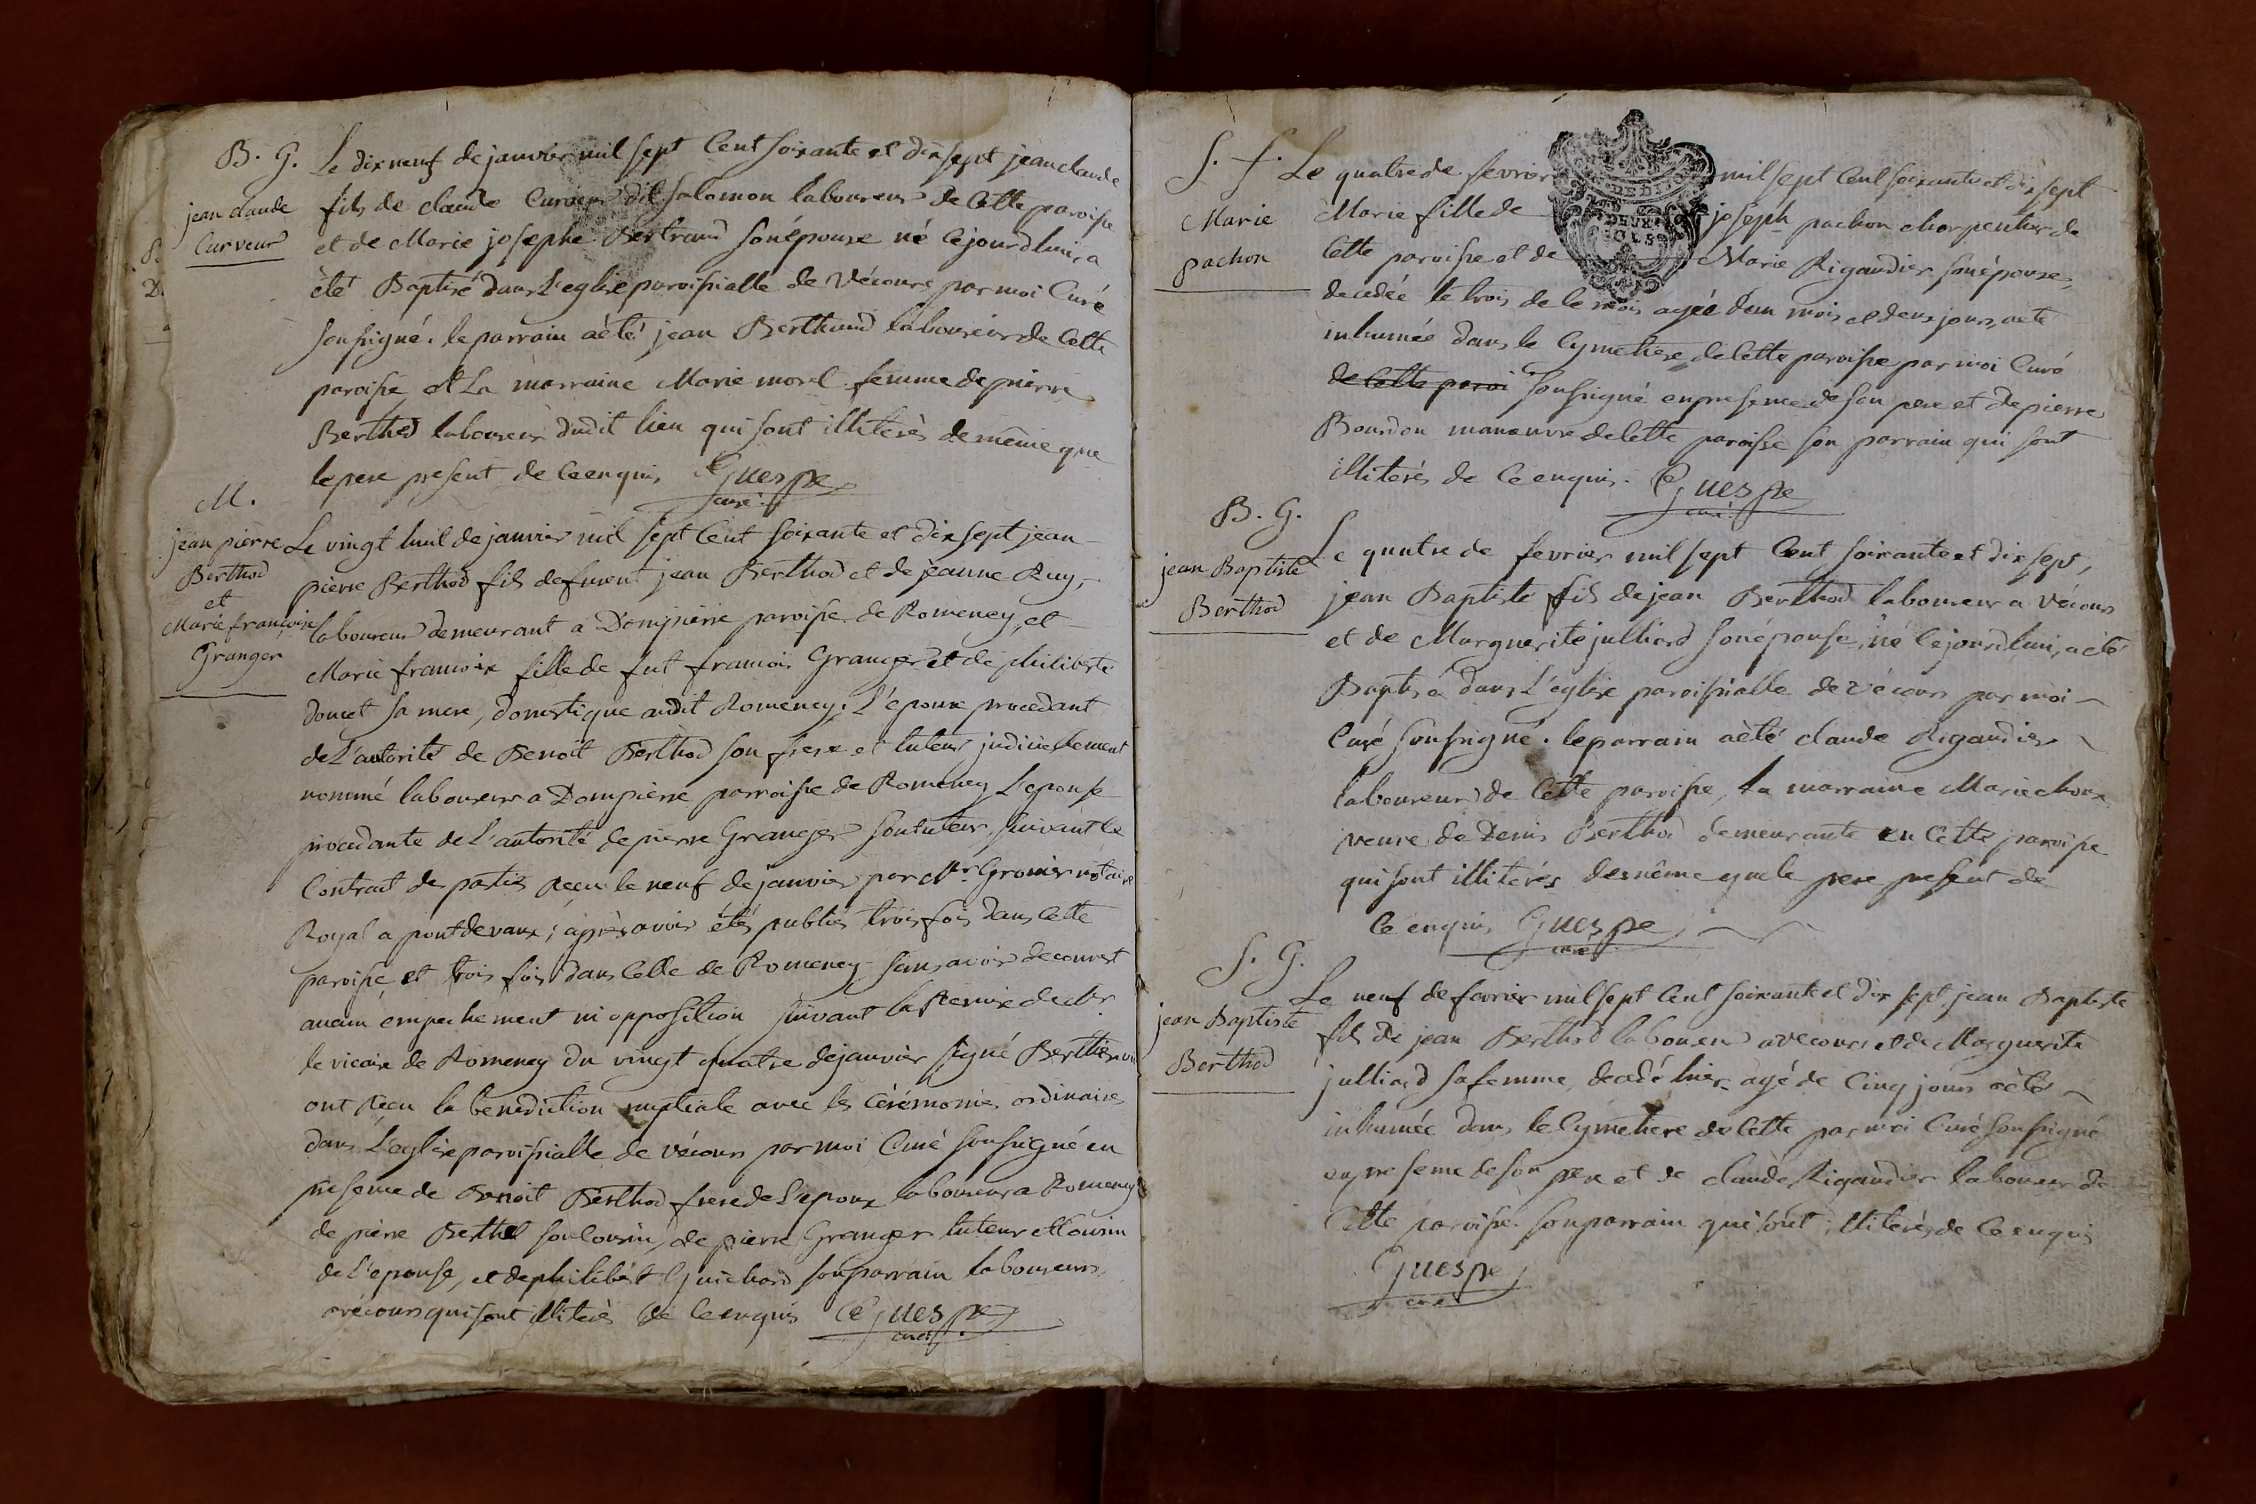 B. G.
jean claude
Curveur
Le dix neuf de janvier mil sept Cent soixante et dix sept jean claude
fils de claude Curveur dit salomon laboureur de Cette paroisse
et de Marie josephe Bertrand son épouse né Cejourdhui, a
été Baptisé dans L'eglise paroissialle de Vécours par moi Curé
soussigné. le parrain a été jean Berthaud laboureur de Cette
paroisse et La marraine Marie morel femme de pierre
Berthod laboureur dudit lieu qui sont illiterés de même que
le pere present de Ce enquis Guespe
curé
M.
jean pierre
Berthod
et
Marie françoise
Granger
Le vingt huit de janvier mil sept Cent soixante et dix sept jean
pierre Berthod fils de fuent jean Berthod et de jeanne Ruy,
laboureur demeurant a Dompierre paroisse de Romeney, et
Marie francoise fille de fut francois Granger et de philiberte
doucet sa mere, domestique audit Romeney; L'epoux procedant
de L'autorité de Benoit Berthod son frere et tuteur judiciellement
nommé laboureur a Dompierre parroisse de Romeney L'epouse
procedante de L'autorité de pierre Granger son tuteur, suivant le
Contract de parties reçu le neuf de janvier par Mr Gronier notaire
Royal a pontdevaux; après avoir étés publiés trois fois dans Cette
paroisse et trois fois dans Celle de Romeney sans avoir decouvert
aucun empechement ni opposition suivant la Remise de Mr
le vicaire de Romeney du vingt quatre de janvier signé Berthier
ont reçu la benediction nuptiale avec les Cérémonies ordinaires
dans L'eglise paroissialle de vécours par moi Curé soussigné en
presence de Benoit Berthod frere de L'epoux laboureur a Romeney
de pierre Berthod son Cousin, de pierre Granger tuteur et Cousin
de L'epouse, et de philibert Guichard son parrain laboureurs
a vécours qui sont illiterés de Ce enquis Guespe
curé
S. f.
Marie
pachon
Le quatre de fevrier mil sept Cent soixante et dix sept
Marie fille de joseph pachon charpentier de
Cette paroisse et de Marie Rigaudier son épouse,
decedée le trois de Ce mois agée d'un mois et deux jours, a eté
inhumée dans le Cymetiere de Cette paroisse par moi Curé
de Cette paroi soussigné en presence de son pere et de pierre
Bourdon manoeuvre de Cette paroisse son parrain qui sont
illiterés de Ce enquis. Guespe
curé
B. G.
jean Baptiste
Berthod
Le quatre de fevrier mil sept Cent soixante et dix sept,
jean Baptiste fils de jean Berthod laboureur a vécours
et de Marguerite julliard son épouse, né Cejourdhui, a eté
Baptisé dans L'eglise paroissialle de vécours par moi
Curé soussigné. le parrain a été claude Rigaudier
laboureur de Cette paroisse, la marraine Marie
veuve de Denis Berthod demeurante en Cette paroisse
qui sont illiterés de même que le pere present de
Ce enquis Guespe
curé
S. G.
jean Baptiste
Berthod
Le neuf de fevrier mil sept Cent soixante et dix sept, jean Baptiste
fils de jean Berthod laboureur a vecours et de Marguerite
julliard sa femme, decedé hier agé de Cinq jours a été
inhumée dans le Cymetiere de Cette par moi Curé soussigné
en presence de son pere et de claude Rigaudier laboureur de
Cette paroisse son parrain qui sont illiterés de Ce enquis
Guespe
curé